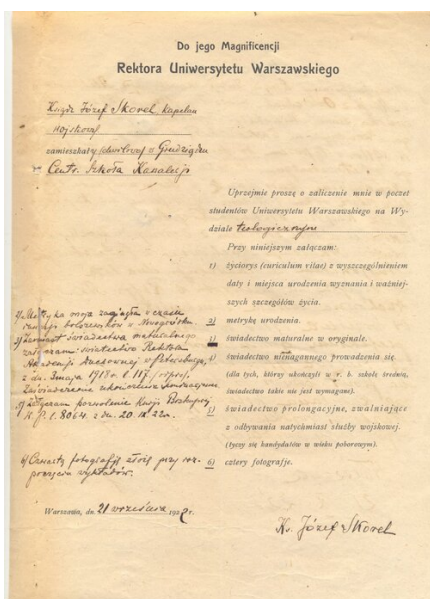 Do jego Magnificencji
Rektora Uniwersytetu Warszawskiego
Ksiądz Józef Skorel kapelan
wojskowy
zamieszkały (chwilowo) w Grudziądzu
Centr. Szkoła Kawalerji
Uprzejmie proszę o zaliczenie mnie w poczet
studentów Uniwersytetu Warszawskiego na Wy-
dziale teologicznym
Przy niniejszym załączam:
1) życiorys (curiculum vitae) z wyszczególnieniem
daty i miejsca urodzenia wyznania i ważniej-
szych szczegółów życia.
2) metrykę urodzenia.
świadectwo maturalne w oryginale.
świadectwo nienagannego prowadzenia się.
(dla tych, którzy ukończyli w r. b. szkołę średnią,
świadectwo takie nie jest wymagane).
5) świadectwo prolongacyjne, zwalniające
z odbywania natychmiast służby wojskowej.
(tyczy się kandydatów w wieku poborowym).
6) cztery fotografje.
2) Metryka moja zaginęła w czasie
bolszewików w
3) Zamiast świadectwa maturalnego
załączam: świadectwo Rektora
Akademji Duchownej w Petersburgu,
z dn. 3 maja 1918 r.
zaświadczenie ukończenia Seminarjum.
załączam pozwolenie Kurji Biskupiej
1. 8064 z dn. 20. IX 22 r.
6) Cztery fotografji złożę przy roz-
poczęciu wykładów.
Warszawa, dn. 21 września 1922 r.
Ks. Józef Skorel